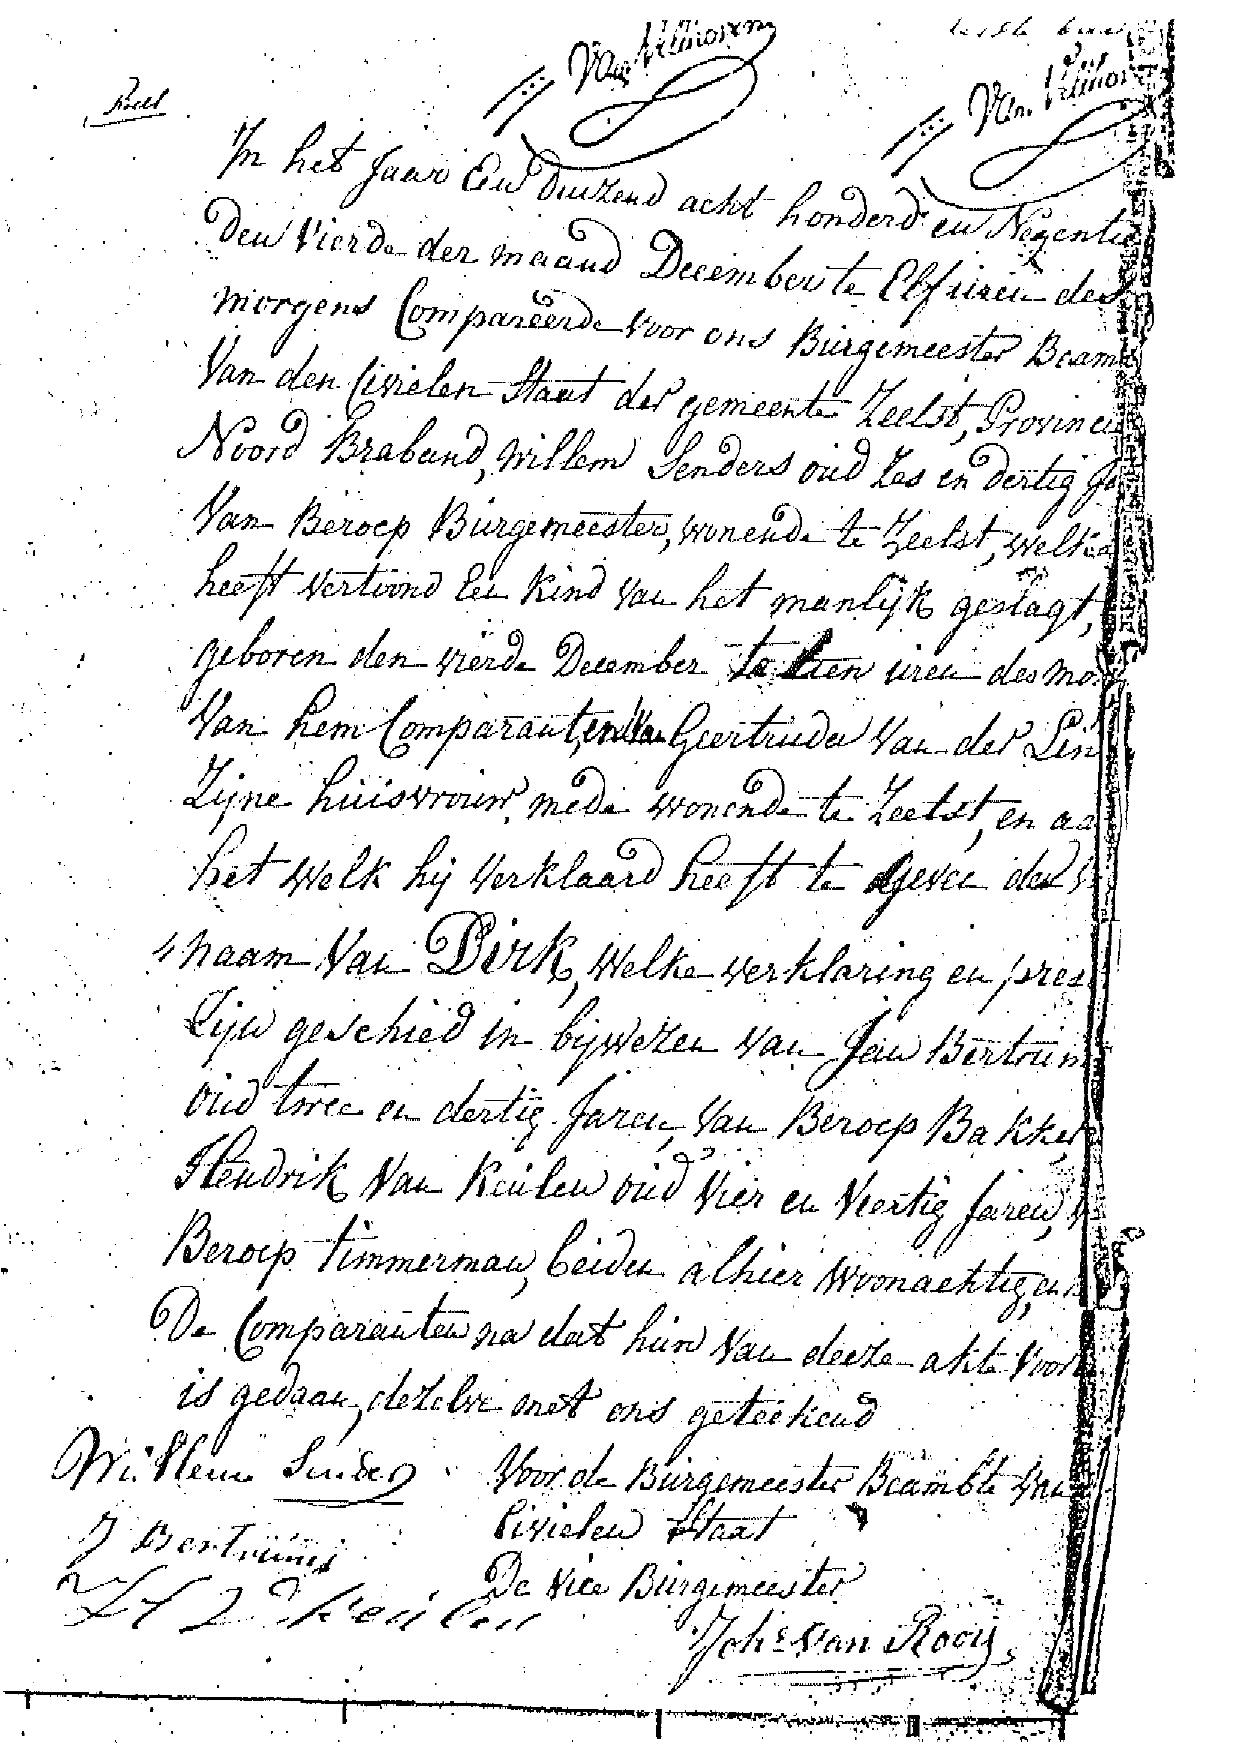 Van Velthoven
Van Velthoven
In het Jaar Een duizend acht honderd en Negentie
den Vierde der maand December te Elf uren des
morgens Compareerde voor ons Burgemeester Beam
Van den Civielen Staat der gemeente Zeelst, Provincie
Noord Braband, Willem Senders oud Zes en dertig Ja
Van Beroep Burgemeester, wonende te Zeelst, welke
heeft vertoond Een Kind van het manlijk geslagt,
geboren den vierde December te tien uren des mor
Van hem Comparant, en Van Geertruda Van der Lin
Zijne huisvrouw mede wonende te Zeelst, en aa
het welk hij verklaard heeft te geven den
naam Van Dirk, welke verklaring en pres
Zijn geschied in bijwezen van Jan Bertrum
oud twee en dertig Jaren, Van Beroep Bakker
Hendrik Van Keulen oud Vier en Veertig Jaren,
Beroep timmerman, beiden alhier woonachtig, en
De Comparanten na dat hun Van deeze akte Voor
is gedaan, dezelve met ons geteekend
Willem Senders
Voor de Burgemeester Beambte Van
Civielen Staat
J Bertrums
De Vice Burgemeester
H V Keulen
Johs Van Rooy